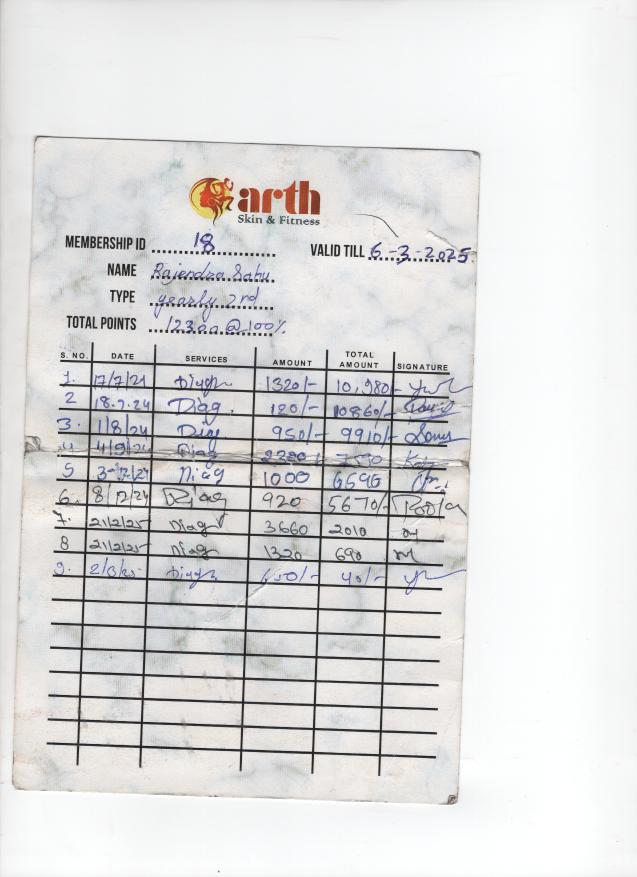 arth
Skin & Fitness
MEMBERSHIP ID 18 VALID TILL 6-3-2025
NAME Rajendra Sahu
TYPE yearly 2nd
TOTAL POINTS 12300@100%
S. NO. DATE SERVICES AMOUNT TOTAL AMOUNT SIGNATURE
1. 17/7/24 Diagn 1320/- 10,980/-
2 18.7.24 Diag. 120/- 10860/-
3. 1/8/24 Diag 950/- 9910/-
4 4/9/24 Diag
5 Diag 1000 6590
6. 8/12/24 Diag 920 5670/- Pooja
7. 21/2/25 Diag 3660 2010
8 21/2/25 Diag 1320 690
9. 2/3/25 Diagn 650/- 40/-